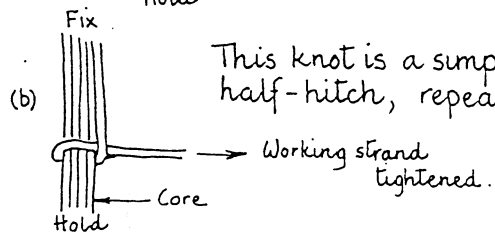 Hold
Fix
This knot is a simp
(b)
half-hitch, repea
Working strand
tightened.
Core
Hold